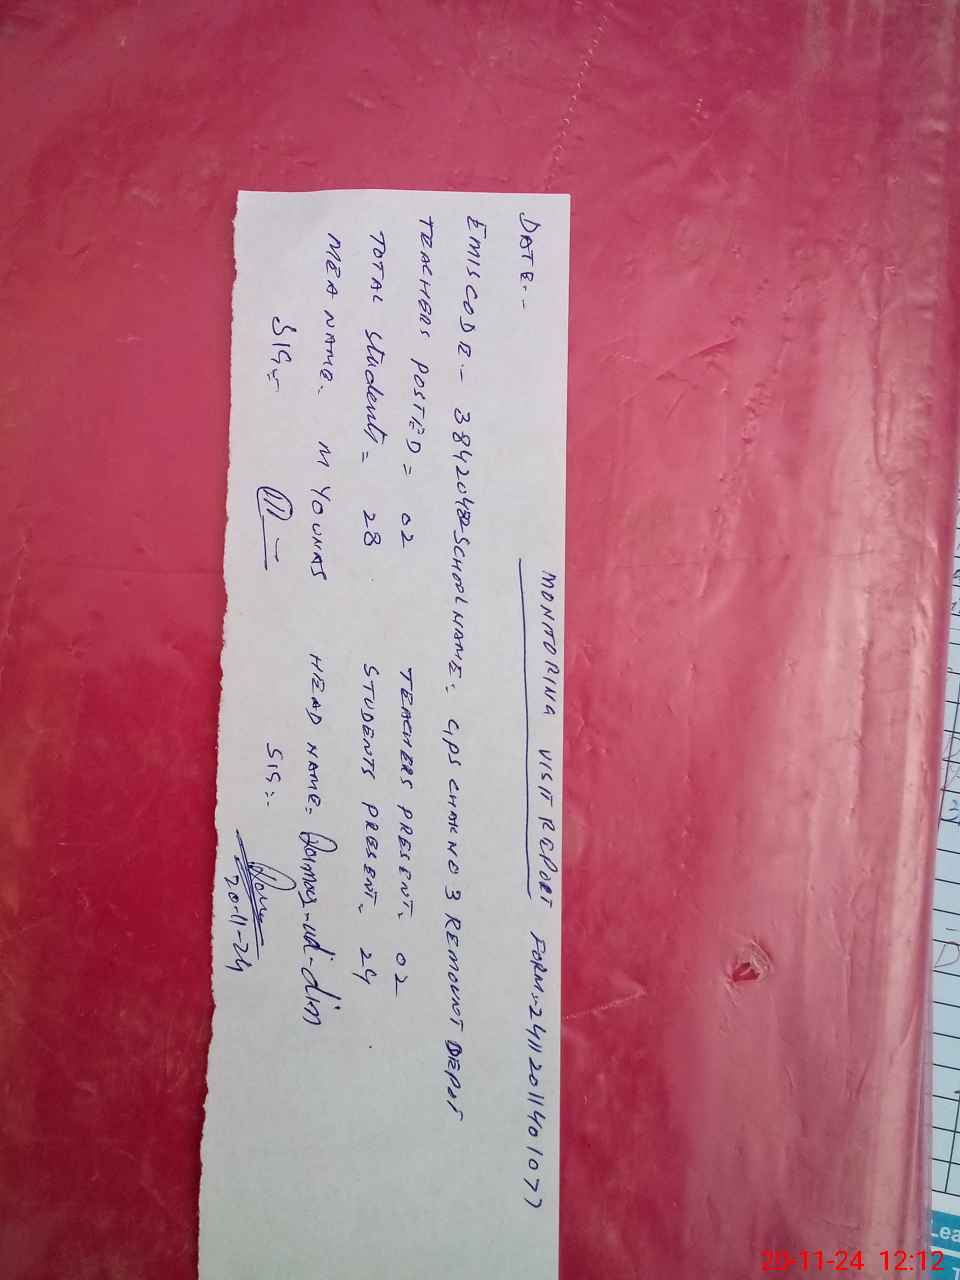 MONITORING VISIT REPORT FORM:-24112011401077
DATE:-
EMISCODE:- 38420482 SCHOOL NAME: GPS CHAK NO 3 REMOUNT DEPOT
TEACHERS POSTED = 02 TEACHERS PRESENT: 02
TOTAL Students = 28 STUDENTS PRESENT: 24
MEA NAME: M YOUNAS HEAD NAME:
SIG:- SIG:-
20-11-24
Lea
20-11-24 12:12